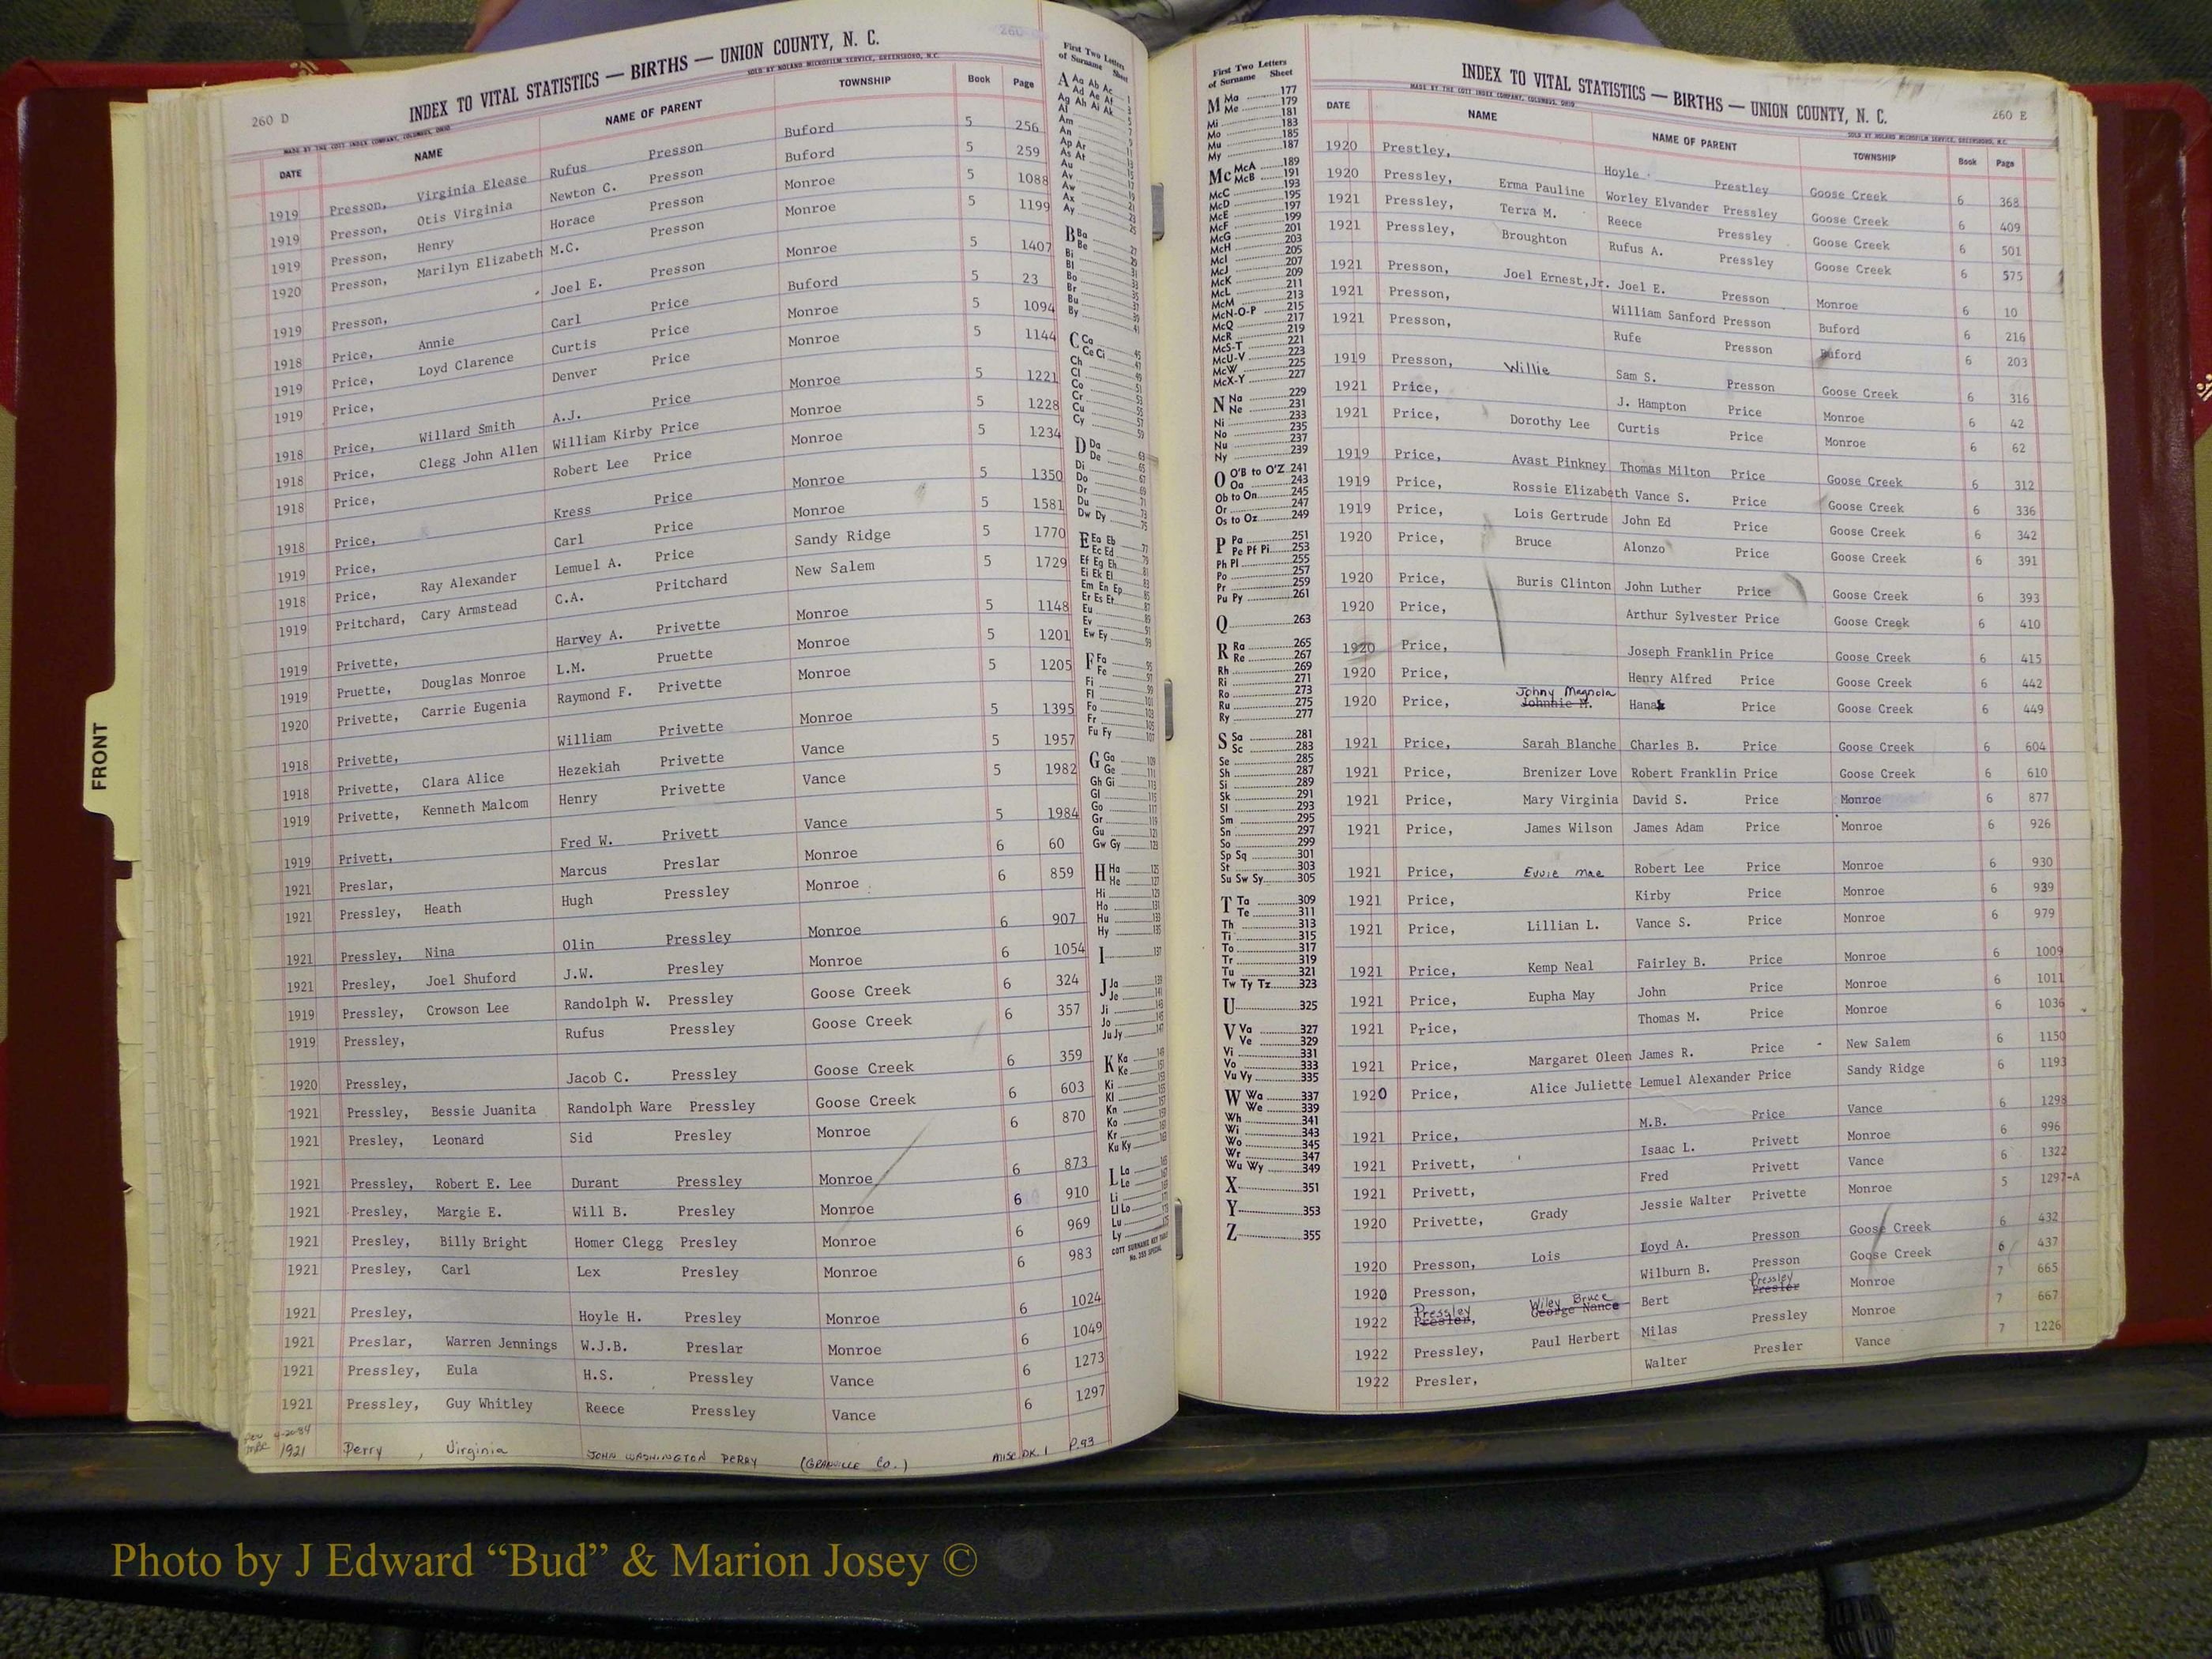 260 D
INDEX TO VITAL STATISTICS — BIRTHS — UNION COUNTY, N. C.
MADE BY THE COTT INDEX COMPANY, COLUMBUS, OHIO SOLD BY NOLAND MICROFILM SERVICE, GREENSBORO, N.C.
DATE NAME NAME OF PARENT TOWNSHIP Book Page
1919 Presson, Virginia Elease Rufus Presson Buford 5 256
1919 Presson, Otis Virginia Newton C. Presson Buford 5 259
1919 Presson, Henry Horace Presson Monroe 5 1088
1920 Presson, Marilyn Elizabeth M.C. Presson Monroe 5 1199
1919 Presson, Joel E. Presson Monroe 5 1407
1918 Price, Annie Carl Price Buford 5 23
1919 Price, Loyd Clarence Curtis Price Monroe 5 1094
1919 Price, Denver Price Monroe 5 1144
1918 Price, Willard Smith A.J. Price Monroe 5 1221
1918 Price, Clegg John Allen William Kirby Price Monroe 5 1228
1918 Price, Robert Lee Price Monroe 5 1234
1918 Price, Kress Price Monroe 5 1350
1919 Price, Carl Price Monroe 5 1581
1918 Price, Ray Alexander Lemuel A. Price Sandy Ridge 5 1770
1919 Pritchard, Cary Armstead C.A. Pritchard New Salem 5 1729
1919 Privette, Harvey A. Privette Monroe 5 1148
1919 Pruette, Douglas Monroe L.M. Pruette Monroe 5 1201
1920 Privette, Carrie Eugenia Raymond F. Privette Monroe 5 1205
1918 Privette, William Privette Monroe 5 1395
1918 Privette, Clara Alice Hezekiah Privette Vance 5 1957
1919 Privette, Kenneth Malcom Henry Privette Vance 5 1982
1919 Privett, Fred W. Privett Vance 5 1984
1921 Preslar, Marcus Preslar Monroe 6 60
1921 Pressley, Heath Hugh Pressley Monroe 6 859
1921 Pressley, Nina Olin Pressley Monroe 6 907
1921 Presley, Joel Shuford J.W. Presley Monroe 6 1054
1919 Pressley, Crowson Lee Randolph W. Pressley Goose Creek 6 324
1919 Pressley, Rufus Pressley Goose Creek 6 357
1920 Pressley, Jacob C. Pressley Goose Creek 6 359
1921 Pressley, Bessie Juanita Randolph Ware Pressley Goose Creek 6 603
1921 Presley, Leonard Sid Presley Monroe 6 870
1921 Pressley, Robert E. Lee Durant Pressley Monroe 6 873
1921 Presley, Margie E. Will B. Presley Monroe 6 910
1921 Presley, Billy Bright Homer Clegg Presley Monroe 6 969
1921 Presley, Carl Lex Presley Monroe 6 983
1921 Presley, Hoyle H. Presley Monroe 6 1024
1921 Preslar, Warren Jennings W.J.B. Preslar Monroe 6 1049
1921 Pressley, Eula H.S. Pressley Vance 6 1273
1921 Pressley, Guy Whitley Reece Pressley Vance 6 1297
1921 Perry, Virginia JOHN WASHINGTON PERRY (GRANVILLE Co.) MISC BK. 1 P.93
FRONT
First Two Letters
of Surname Sheet
A Aa Ab Ac
Ad Ae Af
Ag Ah Ai Ak
Al
Am
An
Ap Ar
As At
Au
Av
Aw
Ax
Ay
B Ba
Be
Bi
Bl
Bo
Br
Bu
By
C Ca
Ce Ci
Ch
Cl
Co
Cr
Cu
Cy
D Da
De
Di
Do
Dr
Du
Dw Dy
E Ea Eb
Ec Ed
Ef Eg Eh
Ei Ek El
Em En Ep
Er Es Et
Eu
Ev
Ew Ey
F Fa
Fe
Fi
Fl
Fo
Fr
Fu Fy
G Ga
Ge
Gh Gi
Gl
Go
Gr
Gu
Gw Gy
H Ha
He
Hi
Ho
Hu
Hy
I
J Ja
Je
Ji
Jo
Ju Jy
K Ka
Ke
Ki
Kl
Kn
Ko
Kr
Ku Ky
L La
Le
Li
Ll Lo
Lu
Ly
COTT SURNAME KEY TABLE
First Two Letters
of Surname Sheet
M Ma 177
Me 179
Mi 181
Mo 183
Mu 185
My 187
Mc McA 189
McB 191
McC 193
McD 195
McE 197
McF 199
McG 201
McH 203
McI 205
McJ 207
McK 209
McL 211
McM 213
McN-O-P 215
McQ 217
McR 219
McS-T 221
McU-V 223
McW 225
McX-Y 227
N Na 229
Ne 231
Ni 233
No 235
Nu 237
Ny 239
O O'B to O'Z 241
Oa 243
Ob to On 245
Or 247
Os to Oz 249
P Pa 251
Pe Pf Pi 253
Ph Pl 255
Po 257
Pr 259
Pu Py 261
Q 263
R Ra 265
Re 267
Rh 269
Ri 271
Ro 273
Ru 275
Ry 277
S Sa 281
Sc 283
Se 285
Sh 287
Si 289
Sk 291
Sl 293
Sm 295
Sn 297
So 299
Sp Sq 301
St 303
Su Sw Sy 305
T Ta 309
Te 311
Th 313
Ti 315
To 317
Tr 319
Tu 321
Tw Ty Tz 323
U 325
V Va 327
Ve 329
Vi 331
Vo 333
Vu Vy 335
W Wa 337
We 339
Wh 341
Wi 343
Wo 345
Wr 347
Wu Wy 349
X 351
Y 353
Z 355
INDEX TO VITAL STATISTICS — BIRTHS — UNION COUNTY, N. C. 260 E
MADE BY THE COTT INDEX COMPANY, COLUMBUS, OHIO SOLD BY NOLAND MICROFILM SERVICE, GREENSBORO, N.C.
DATE NAME NAME OF PARENT TOWNSHIP Book Page
1920 Prestley, Hoyle Prestley Goose Creek 6 368
1920 Pressley, Erma Pauline Worley Elvander Pressley Goose Creek 6 409
1921 Pressley, Terra M. Reece Pressley Goose Creek 6 501
1921 Pressley, Broughton Rufus A. Pressley Goose Creek 6 575
1921 Presson, Joel Ernest,Jr. Joel E. Presson Monroe 6 10
1921 Presson, William Sanford Presson Buford 6 216
1921 Presson, Rufe Presson Buford 6 203
1919 Presson, Willie Sam S. Presson Goose Creek 6 316
1921 Price, J. Hampton Price Monroe 6 42
1921 Price, Dorothy Lee Curtis Price Monroe 6 62
1919 Price, Avast Pinkney Thomas Milton Price Goose Creek 6 312
1919 Price, Rossie Elizabeth Vance S. Price Goose Creek 6 336
1919 Price, Lois Gertrude John Ed Price Goose Creek 6 342
1920 Price, Bruce Alonzo Price Goose Creek 6 391
1920 Price, Buris Clinton John Luther Price Goose Creek 6 393
1920 Price, Arthur Sylvester Price Goose Creek 6 410
1920 Price, Joseph Franklin Price Goose Creek 6 415
1920 Price, Henry Alfred Price Goose Creek 6 442
Johny Magnola
1920 Price, Johnnie M. Hana Price Goose Creek 6 449
1921 Price, Sarah Blanche Charles B. Price Goose Creek 6 604
1921 Price, Brenizer Love Robert Franklin Price Goose Creek 6 610
1921 Price, Mary Virginia David S. Price Monroe 6 877
1921 Price, James Wilson James Adam Price Monroe 6 926
1921 Price, Evvie Mae Robert Lee Price Monroe 6 930
1921 Price, Kirby Price Monroe 6 939
1921 Price, Lillian L. Vance S. Price Monroe 6 979
1921 Price, Kemp Neal Fairley B. Price Monroe 6 1009
1921 Price, Eupha May John Price Monroe 6 1011
1921 Price, Thomas M. Price Monroe 6 1036
1921 Price, Margaret Oleen James R. Price New Salem 6 1150
1920 Price, Alice Juliette Lemuel Alexander Price Sandy Ridge 6 1193
1921 Price, M.B. Price Vance 6 1298
1921 Privett, Isaac L. Privett Monroe 6 996
1921 Privett, Fred Privett Vance 6 1322
1920 Privette, Grady Jessie Walter Privette Monroe 5 1297-A
1920 Presson, Lois Loyd A. Presson Goose Creek 6 432
1920 Presson, Wilburn B. Presson Goose Creek 6 437
Pressley Wiley Bruce Pressley
1922 Presler, George Nance Bert Presler Monroe 7 665
1922 Pressley, Paul Herbert Milas Pressley Monroe 7 667
1922 Presler, Walter Presler Vance 7 1226
Photo by J Edward “Bud” & Marion Josey ©